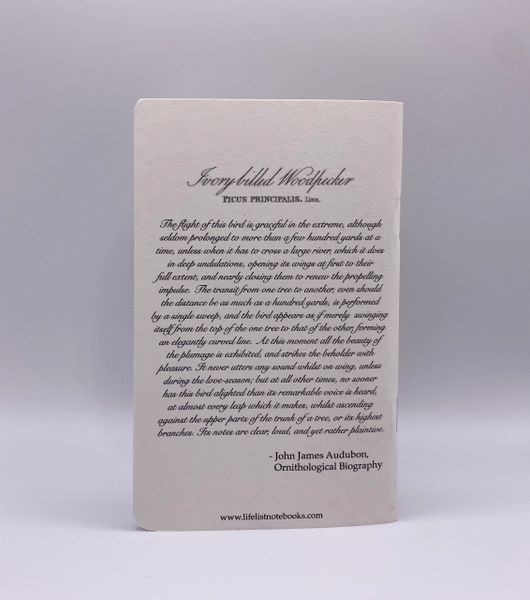 Ivory-billed Woodpecker
PICUS PRINCIPALIS. Linn.
The flight of this bird is graceful in the extreme, although
seldom prolonged to more than a few hundred yards at a
time, unless when it has to cross a large river, which it does
in deep undulations, opening its wings at first to their
full extent, and nearly closing them to renew the propelling
impulse. The transit from one tree to another, even should
the distance be as much as a hundred yards, is performed
by a single sweep, and the bird appears as if merely swinging
itself from the top of the one tree to that of the other, forming
an elegantly curved line. At this moment all the beauty of
the plumage is exhibited, and strikes the beholder with
pleasure. It never utters any sound whilst on wing, unless
during the love-season; but at all other times, no sooner
has this bird alighted than its remarkable voice is heard,
at almost every leap which it makes, whilst ascending
against the upper parts of the trunk of a tree, or its highest
branches. Its notes are clear, loud, and yet rather plaintive.
- John James Audubon,
Ornithological Biography
www.lifelistnotebooks.com